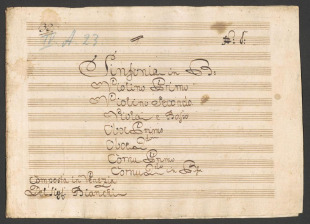 VI. A. 23
Sinfonia in B:
Violino Primo
Violino Secondo
Viola e Basso
Oboe Primo
Oboe 2do
Cornu Primo
Cornu 2do in B
Composta in Venezia
Del Sigr Bianchi